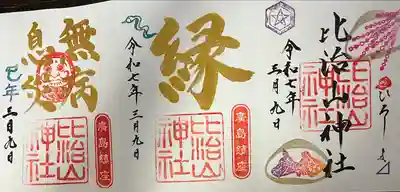 ひろしま
比治山神社
比治山
神社
令和七年
三月九日
廣島鎮座
縁
比治山
神社
令和七年 三月九日
廣島鎮座
無病
息災
比治山
神社
巳年 三月九日